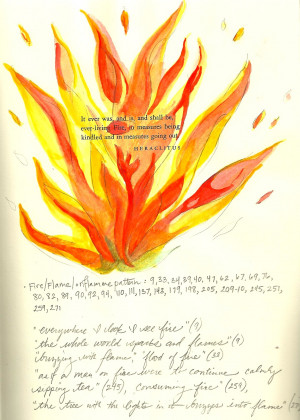 It ever was, and is, and shall be,
ever-living Fire, in measures being
kindled and in measures going out.
HERACLITUS
· Fire/Flame/oriflamme pattern: 9, 33, 34, 39, 40, 47, 62, 67, 69, 76,
80, 82, 89, 90, 92, 94, 110, 111, 137, 142, 179, 198, 205, 209-10, 245, 251,
259, 271
"everywhere I look I see fire" (9)
"the whole world sparks and flames" (9)
"buzzing with flame", "flood of fire" (33)
"as if a man on fire were to continue calmly
sipping tea" (245), consuming fire" (259)
"the tree with the lights in it buzzes into flame"